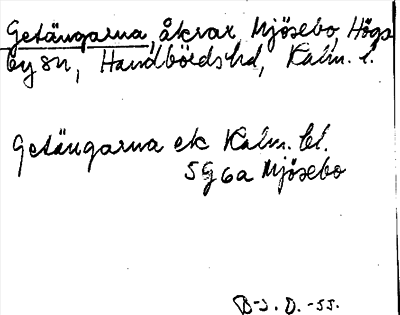 Getängarna, åkrar Mjösebo, Högs
by sn, Handbördshd, Kalm. l.
Getängarna ek Kalm. bl.
5G6a Mjösebo
B-J. D. -55.